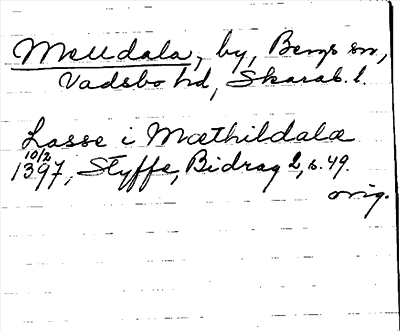 Melldala, by, Bergs sn,
Vadsbo hd, Skarab. l.
Lasse i Mæthildala
10/2
1397, Styffe, Bidrag 2, s. 49.
orig.